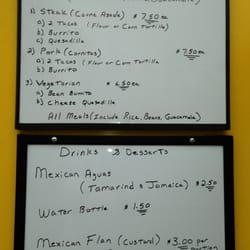 1) Steak (Carne Asada) $7.50 ea
a) 2 Tacos (Flour or Corn Tortilla)
b) Burrito
c) Quesadilla
2) Pork (Carnitas) $7.50 ea
a) 2 Tacos (Flour or Corn Tortilla)
b) Burrito
3) Vegetarian $6.50 ea
a) Bean Burrito
b) Cheese Quesadilla
All Meals (Include Rice, Beans, Guacamole)
Drinks & Desserts
Mexican Aguas
(Tamarind & Jamaica) $2.50
Water Bottle $1.50
Mexican Flan (Custard) $3.00 per